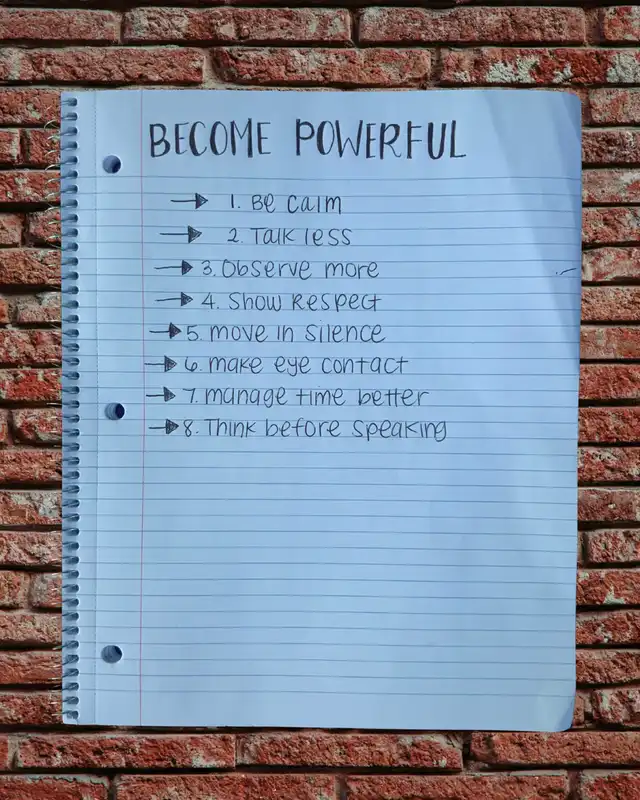 BECOME POWERFUL
→ 1. Be calm
→ 2. Talk less
→ 3. Observe more
→ 4. Show Respect
→ 5. move in silence
→ 6. make eye contact
→ 7. manage time better
→ 8. Think before speaking